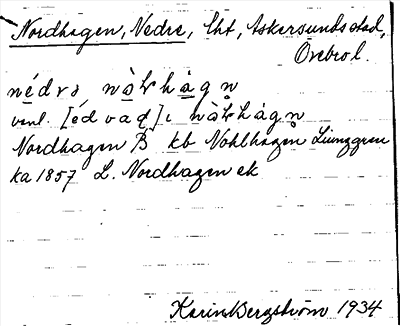 Nordhagen, Nedre, lht, Askersunds stad,
Örebro l.
nédrə
vanl.
Nordhagen B kb Nohlhagen Liunggren
ka 1857 L. Nordhagen ek
Karin Bergström 1934